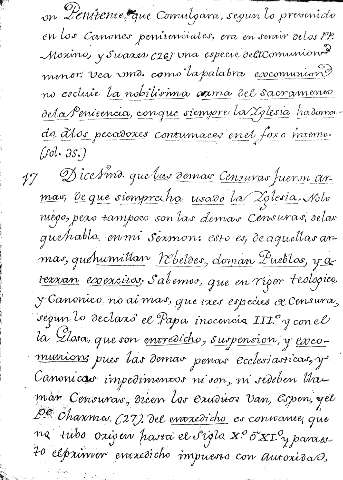 un Penitente, que Comulgara, segun lo prevenido
en los Canones penitenciales, era en sentir de los PP.
Morino, y Suarez (26) una especie de excomunion
menor: vea vmd. como la palabra excomunion
no excluie la nobilisima arma del Sacramento
de la Penitencia, con que siempre la Iglesia ha doma-
do á los pecadores contumaces en el foro interno.
(fol. 35.)
17 Dice vmd. que las demas Censuras fueron ar-
mas, de que siempre ha usado la Iglesia. No lo
niego, pero tampoco son las demas Censuras, de las
que habla, en mi Sermon: esto es, de aquellas ar-
mas, que humillan Rebeldes, doman Pueblos, y a-
terran exercitos. Sabemos, que en rigor Teologico,
y Canonico no ai mas, que tres especies de Censura,
segun lo declaró el Papa Inocencia III.º y con el
la Glosa, que son entredicho, suspension, y exco-
munion; pues las demas penas Ecclesiasticas, y
Canonicas impedimentos ni son, ni se deben lla-
mar Censuras, dicen los eruditos Van, Espen, y el
Pe. Charmes. (27). del entredicho es constante, que
no tubo origen hasta el Siglo X.º ó XI.º y para es-
to el primer entredicho impuesto con Autoridad,